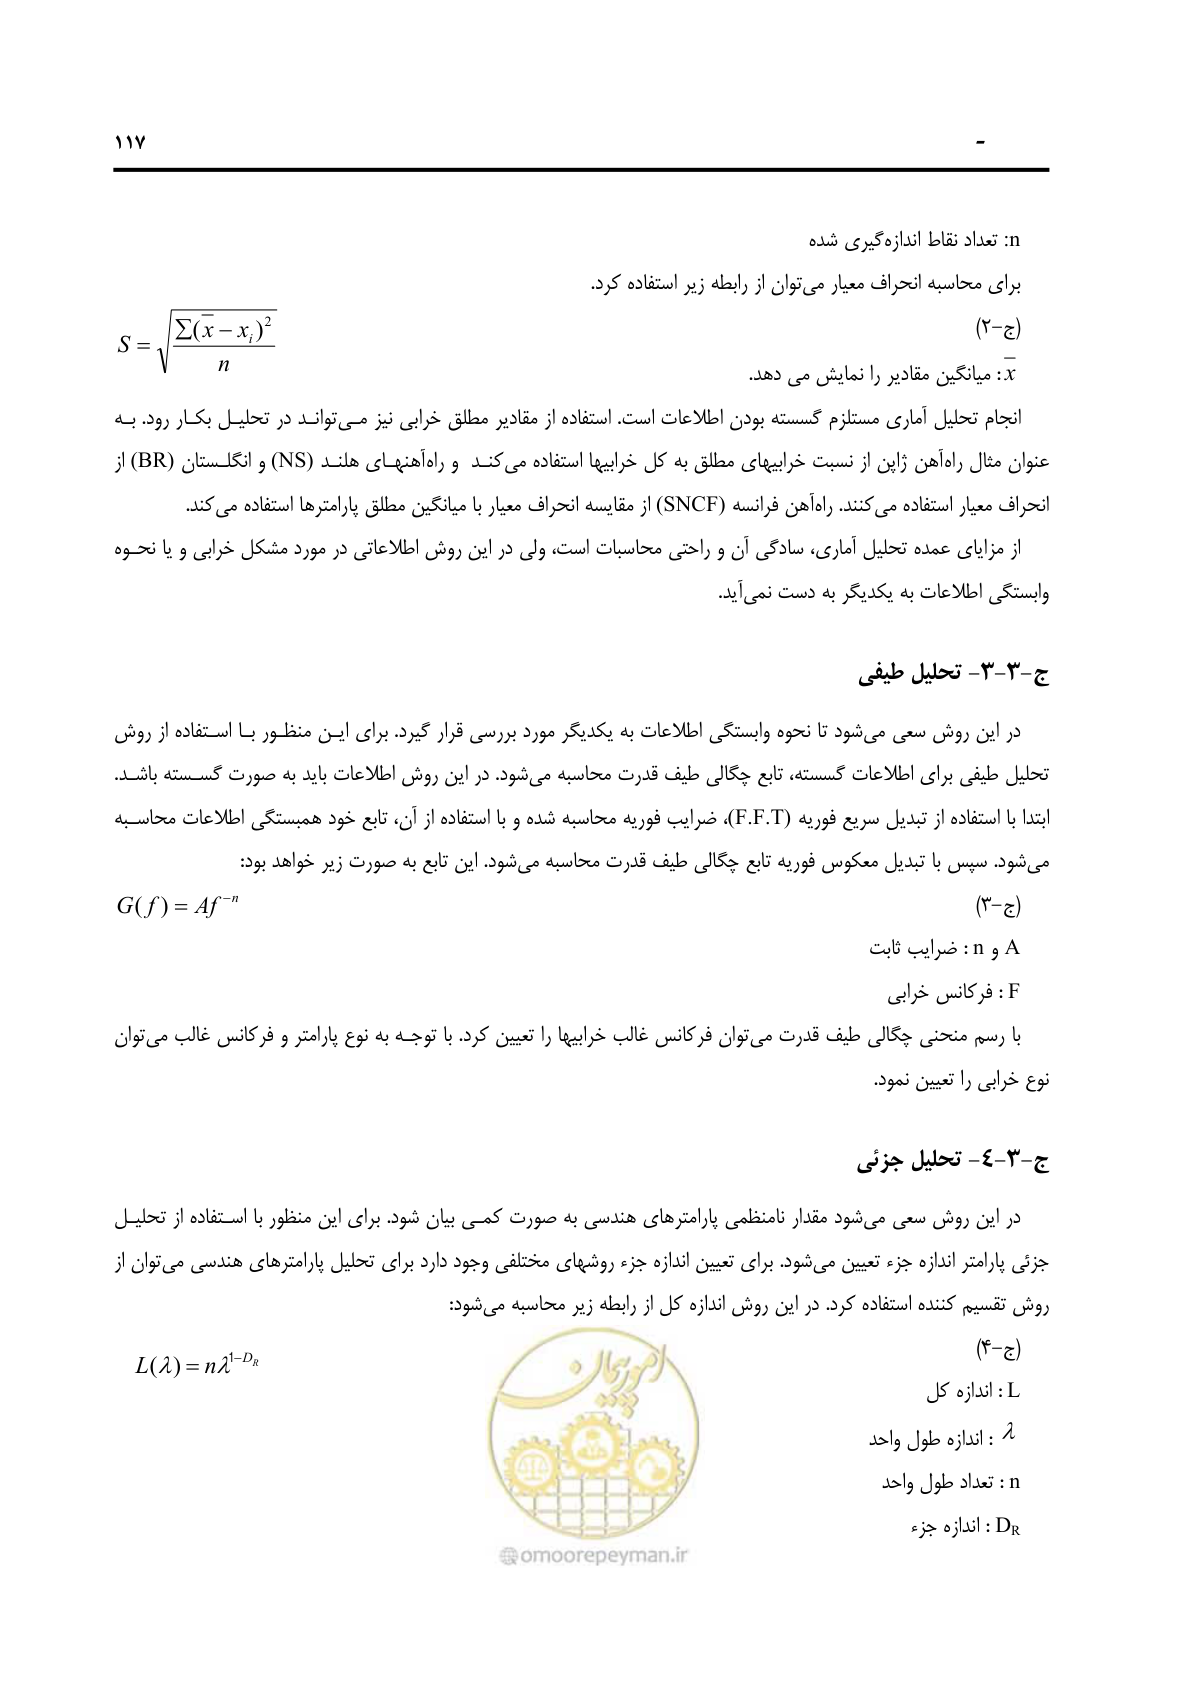 - ۱۱۷
n: تعداد نقاط اندازه‌گیری شده
برای محاسبه انحراف معیار می‌توان از رابطه زیر استفاده کرد.
(ج-۲) S = √(∑(x̅ − xᵢ)² / n)
x̅ : میانگین مقادیر را نمایش می دهد.
انجام تحلیل آماری مستلزم گسسته بودن اطلاعات است. استفاده از مقادیر مطلق خرابی نیز می‌توانـد در تحلیـل بکـار رود. بـه
عنوان مثال راه‌آهن ژاپن از نسبت خرابیهای مطلق به کل خرابیها استفاده می‌کنـد و راه‌آهنهـای هلنـد (NS) و انگلـستان (BR) از
انحراف معیار استفاده می‌کنند. راه‌آهن فرانسه (SNCF) از مقایسه انحراف معیار با میانگین مطلق پارامترها استفاده می‌کند.
از مزایای عمده تحلیل آماری، سادگی آن و راحتی محاسبات است، ولی در این روش اطلاعاتی در مورد مشکل خرابی و یا نحـوه
وابستگی اطلاعات به یکدیگر به دست نمی‌آید.
ج-۳-۳- تحلیل طیفی
در این روش سعی می‌شود تا نحوه وابستگی اطلاعات به یکدیگر مورد بررسی قرار گیرد. برای ایـن منظـور بـا اسـتفاده از روش
تحلیل طیفی برای اطلاعات گسسته، تابع چگالی طیف قدرت محاسبه می‌شود. در این روش اطلاعات باید به صورت گسـسته باشـد.
ابتدا با استفاده از تبدیل سریع فوریه (F.F.T)، ضرایب فوریه محاسبه شده و با استفاده از آن، تابع خود همبستگی اطلاعات محاسـبه
می‌شود. سپس با تبدیل معکوس فوریه تابع چگالی طیف قدرت محاسبه می‌شود. این تابع به صورت زیر خواهد بود:
(ج-۳) G(f) = Af⁻ⁿ
A و n : ضرایب ثابت
F : فرکانس خرابی
با رسم منحنی چگالی طیف قدرت می‌توان فرکانس غالب خرابیها را تعیین کرد. با توجـه به نوع پارامتر و فرکانس غالب می‌توان
نوع خرابی را تعیین نمود.
ج-۳-٤- تحلیل جزئی
در این روش سعی می‌شود مقدار نامنظمی پارامترهای هندسی به صورت کمـی بیان شود. برای این منظور با اسـتفاده از تحلیـل
جزئی پارامتر اندازه جزء تعیین می‌شود. برای تعیین اندازه جزء روشهای مختلفی وجود دارد برای تحلیل پارامترهای هندسی می‌توان از
روش تقسیم کننده استفاده کرد. در این روش اندازه کل از رابطه زیر محاسبه می‌شود:
(ج-۴) L(λ) = nλ^(1−D_R)
L : اندازه کل
λ : اندازه طول واحد
n : تعداد طول واحد
D_R : اندازه جزء
امور پیمان
@omoorepeyman.ir